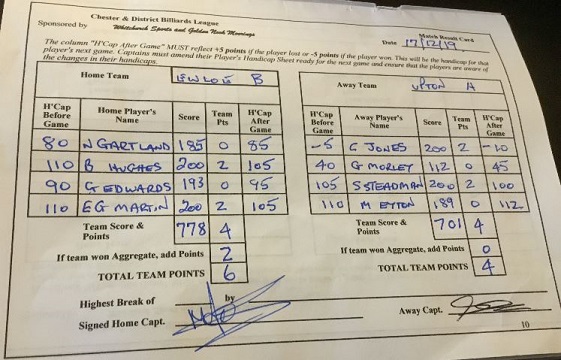 Chester & District Billiards League
Match Result Card
Sponsored by Whitchurch Sports and Golden Nook Moorings
Date 17/12/19
The column "H'Cap After Game" MUST reflect +5 points if the player lost or -5 points if the player won. This will be the handicap for that
player's next game. Captains must amend their Player's Handicap Sheet ready for the next game and ensure that the players are aware of
the changes in their handicaps.
Home Team LEWLOE B
Away Team UPTON A
H'Cap Before Game Home Player's Name Score Team Pts H'Cap After Game
80 N GARTLAND 185 0 85
110 B HUGHES 200 2 105
90 G EDWARDS 193 0 95
110 EG MARTIN 200 2 105
Team Score & Points 778 4
If team won Aggregate, add Points 2
TOTAL TEAM POINTS 6
H'Cap Before Game Away Player's Name Score Team Pts H'Cap After Game
-5 C JONES 200 2 -10
40 G MORLEY 112 0 45
105 S STEADMAN 200 2 100
110 M EYTON 189 0 112
Team Score & Points 701 4
If team won Aggregate, add Points 0
TOTAL TEAM POINTS 4
Highest Break of by
Signed Home Capt.
Away Capt.
10